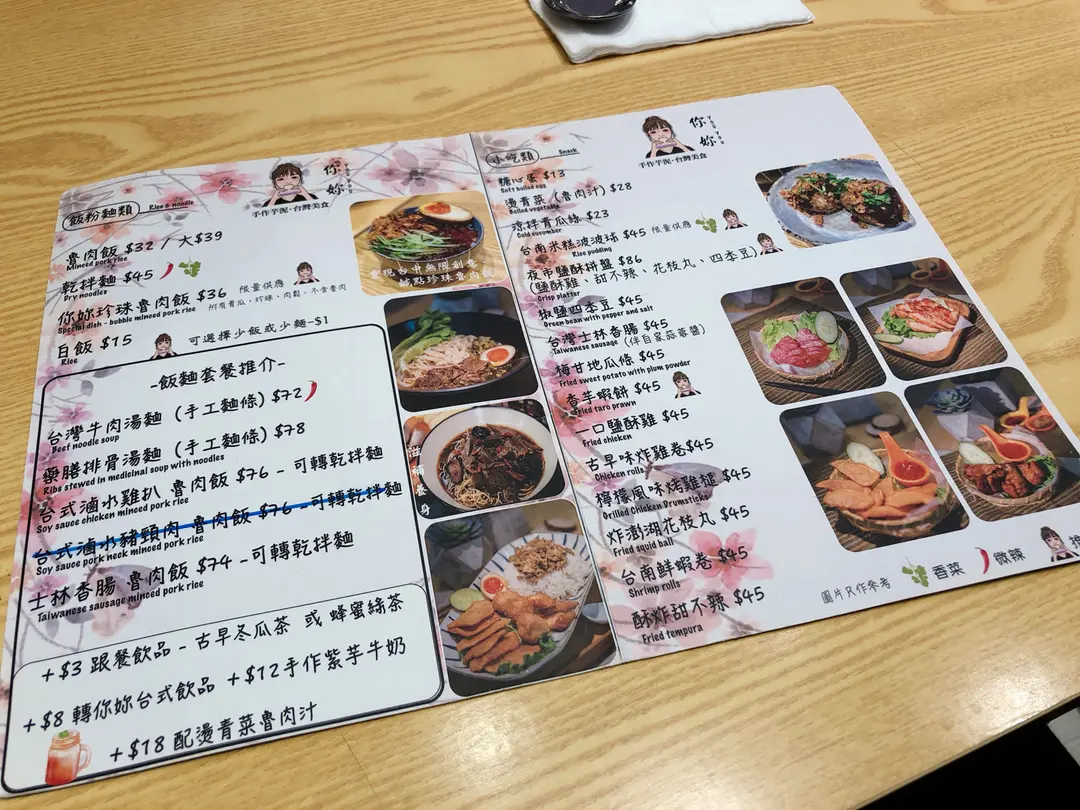 你妳
YOU YOU
手作芋泥·台灣美食
飯粉麵類 Rice & noodle
魯肉飯 $32 / 大$39
Minced pork rice
乾拌麵 $45
Dry noodles
你妳珍珠魯肉飯 $36 限量供應
Special dish - bubble minced pork rice 附有青瓜、珍珠、肉鬆，不含魯肉
白飯 $15
Rice
可選擇少飯或少麵-$1
-飯麵套餐推介-
台灣牛肉湯麵 (手工麵條) $72
Beef noodle soup
藥膳排骨湯麵 (手工麵條) $78
Ribs stewed in medicinal soup with noodles
台式滷水雞扒 魯肉飯 $76 - 可轉乾拌麵
Soy sauce chicken minced pork rice
台式滷水豬頸肉 魯肉飯 $76 - 可轉乾拌麵
Soy sauce pork neck minced pork rice
士林香腸 魯肉飯 $74 - 可轉乾拌麵
Taiwanese sausage minced pork rice
+$3 跟餐飲品 - 古早冬瓜茶 或 蜂蜜綠茶
+$8 轉你妳台式飲品 +$12手作紫芋牛奶
+$18 配燙青菜魯肉汁
滋補養身
你妳
YOU YOU
手作芋泥·台灣美食
小吃類 Snack
糖心蛋 $13
Soft boiled egg
燙青菜 (魯肉汁) $28
Boiled vegetable
涼拌青瓜絲 $23
Cold cucumber
台南米糕波波球 $45 限量供應
Rice pudding
夜市鹽酥拼盤 $86
(鹽酥雞、甜不辣、花枝丸、四季豆)
Crisp platter
椒鹽四季豆 $45
Green bean with pepper and salt
台灣士林香腸 $45
Taiwanese sausage (伴自家蒜蓉醬)
梅甘地瓜條 $45
Fried sweet potato with plum powder
香芋蝦餅 $45
Fried taro prawn
一口鹽酥雞 $45
Fried chicken
古早味炸雞卷$45
Chicken rolls
檸檬風味烤雞槌 $45
Grilled Chicken Drumsticks
炸澎湖花枝丸 $45
Fried squid ball
台南鮮蝦卷 $45
Shrimp rolls
酥炸甜不辣 $45
Fried tempura
圖片只作參考
香菜
微辣